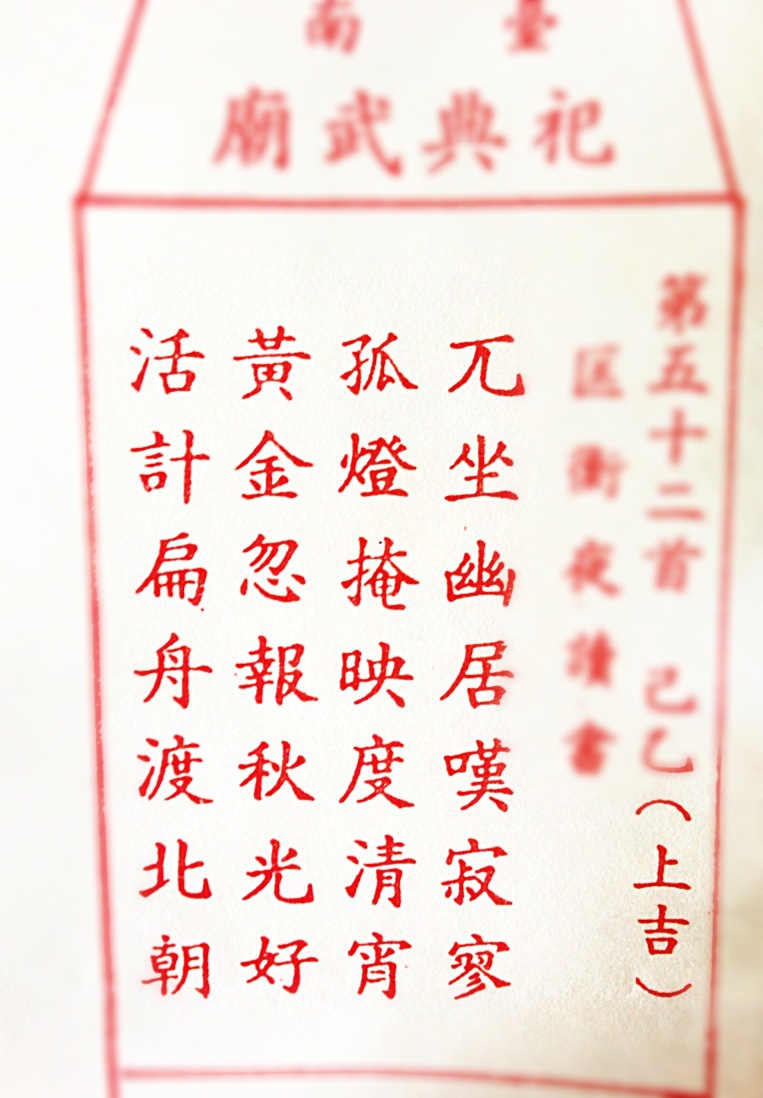 臺南
祀典武廟
第五十二首 己乙（上吉）
匡衡夜讀書
兀坐幽居嘆寂寥
孤燈掩映度清宵
黃金忽報秋光好
活計扁舟渡北朝